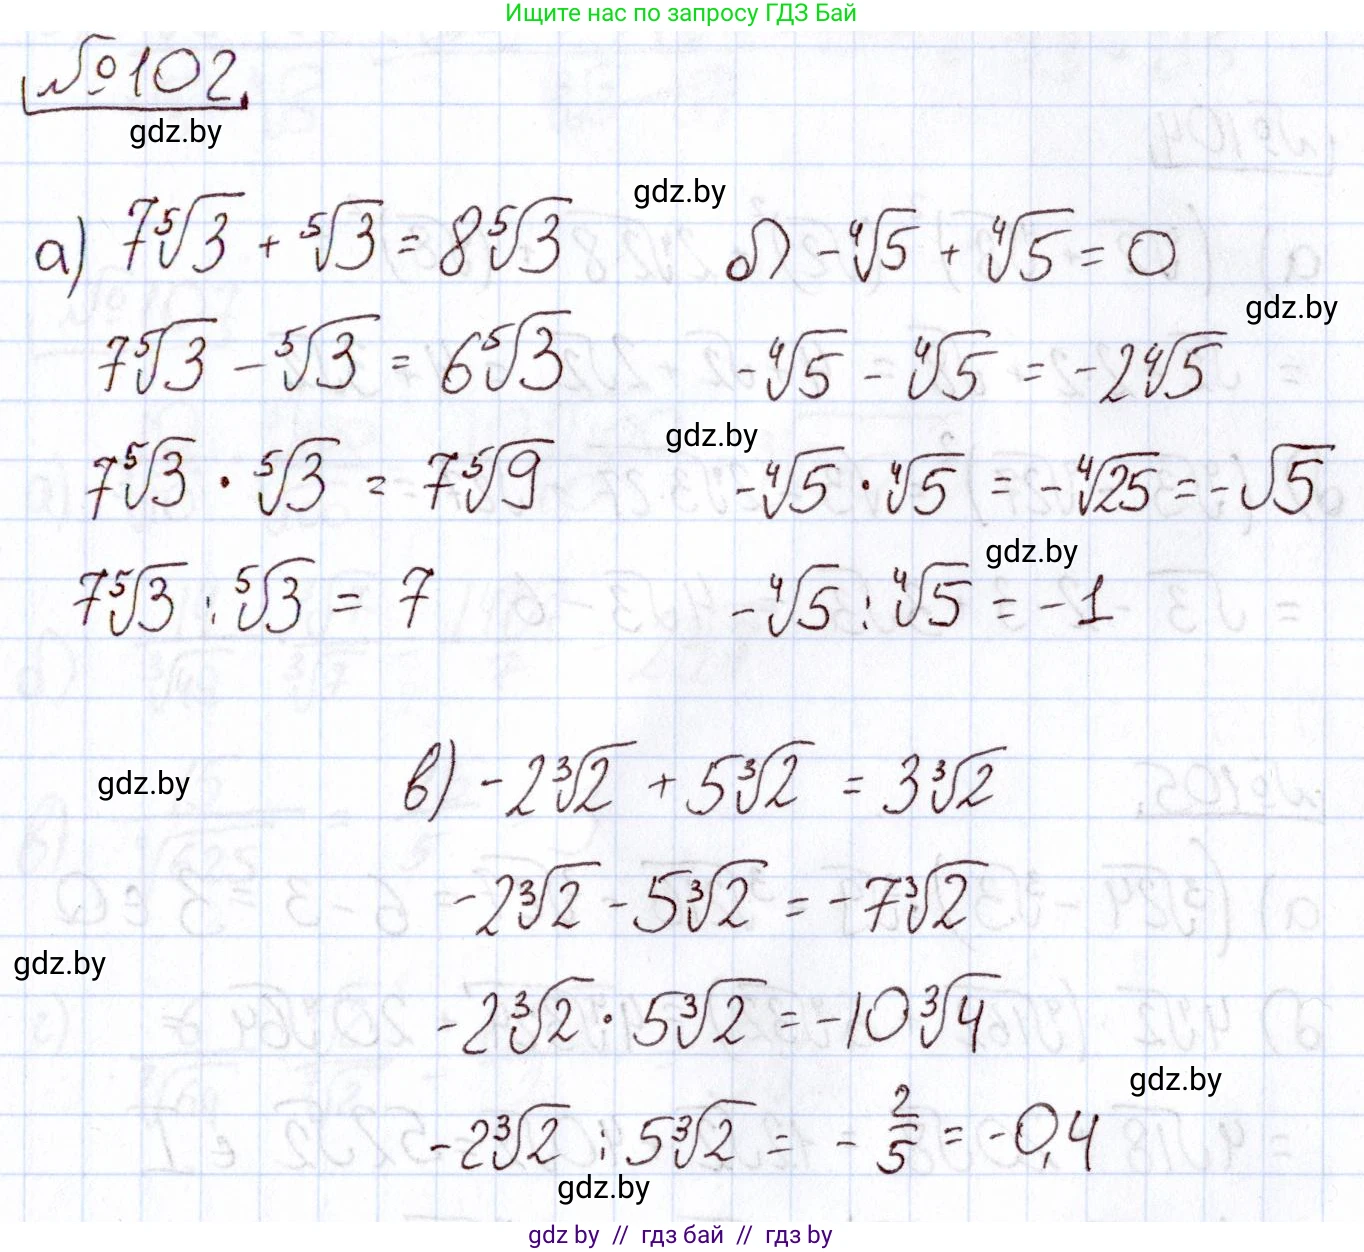 Ищите нас по запросу ГДЗ Бай
№102
gdz.by
gdz.by
а) 7⁵√3 + ⁵√3 = 8⁵√3
б) -⁴√5 + ⁴√5 = 0
gdz.by
7⁵√3 - ⁵√3 = 6⁵√3
-⁴√5 - ⁴√5 = -2⁴√5
gdz.by
7⁵√3 · ⁵√3 = 7⁵√9
-⁴√5 · ⁴√5 = -⁴√25 = -√5
gdz.by
7⁵√3 : ⁵√3 = 7
-⁴√5 : ⁴√5 = -1
gdz.by
в) -2³√2 + 5³√2 = 3³√2
-2³√2 - 5³√2 = -7³√2
gdz.by
-2³√2 · 5³√2 = -10³√4
gdz.by
-2³√2 : 5³√2 = -2/5 = -0,4
gdz.by
gdz by // гдз бай // gdz by